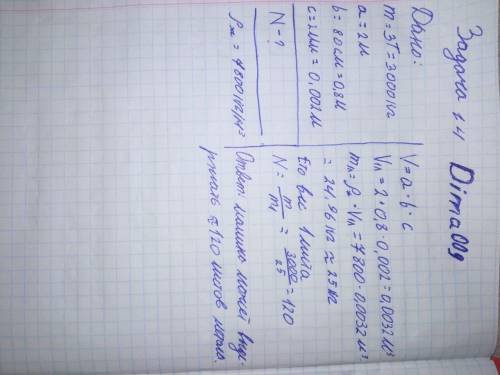 Задача 1.4 Dima009
Дано:
m = 3т = 3000 кг
a = 2м
b = 80 см = 0,8м
c = 2мм = 0,002 м
N - ?
ρж = 7800 кг/м³
V = a · b · c
Vл = 2 · 0,8 · 0,002 = 0,0032 м³
mл = ρж · Vл = 7800 · 0,0032 м³
= 24,96 кг ≈ 25 кг
Это вес 1 листа
N = m/m₁ = 3000/25 = 120
Ответ: машина может выде-
ржать ≈ 120 листов метала.